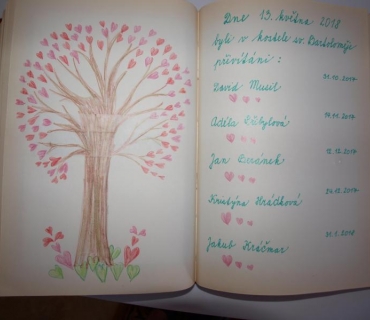 Dne 19. května 2018
byli v kostele sv. Bartoloměje
přivítáni :
David Musil 31.10.2017
Adéla 14.11.2017
Jan Beránek 12.12.2017
Kristýna Hrádková 24.12.2017
Jakub Kráčmar 31.1.2018